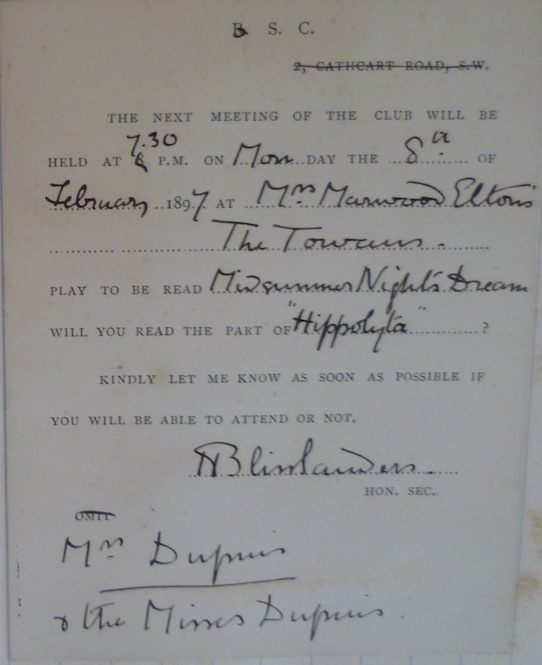 B. S. C.
2, CATHCART ROAD, S.W.
THE NEXT MEETING OF THE CLUB WILL BE
7.30
HELD AT 8 P.M. ON Mon DAY THE 8th OF
February 1897 AT Mrs Marwood Elton's
The Towans.
PLAY TO BE READ Midsummer Night's Dream
WILL YOU READ THE PART OF "Hippolyta" ?
KINDLY LET ME KNOW AS SOON AS POSSIBLE IF
YOU WILL BE ABLE TO ATTEND OR NOT.
HON. SEC.
OMIT
Mrs Dupuis
& the Misses Dupuis.